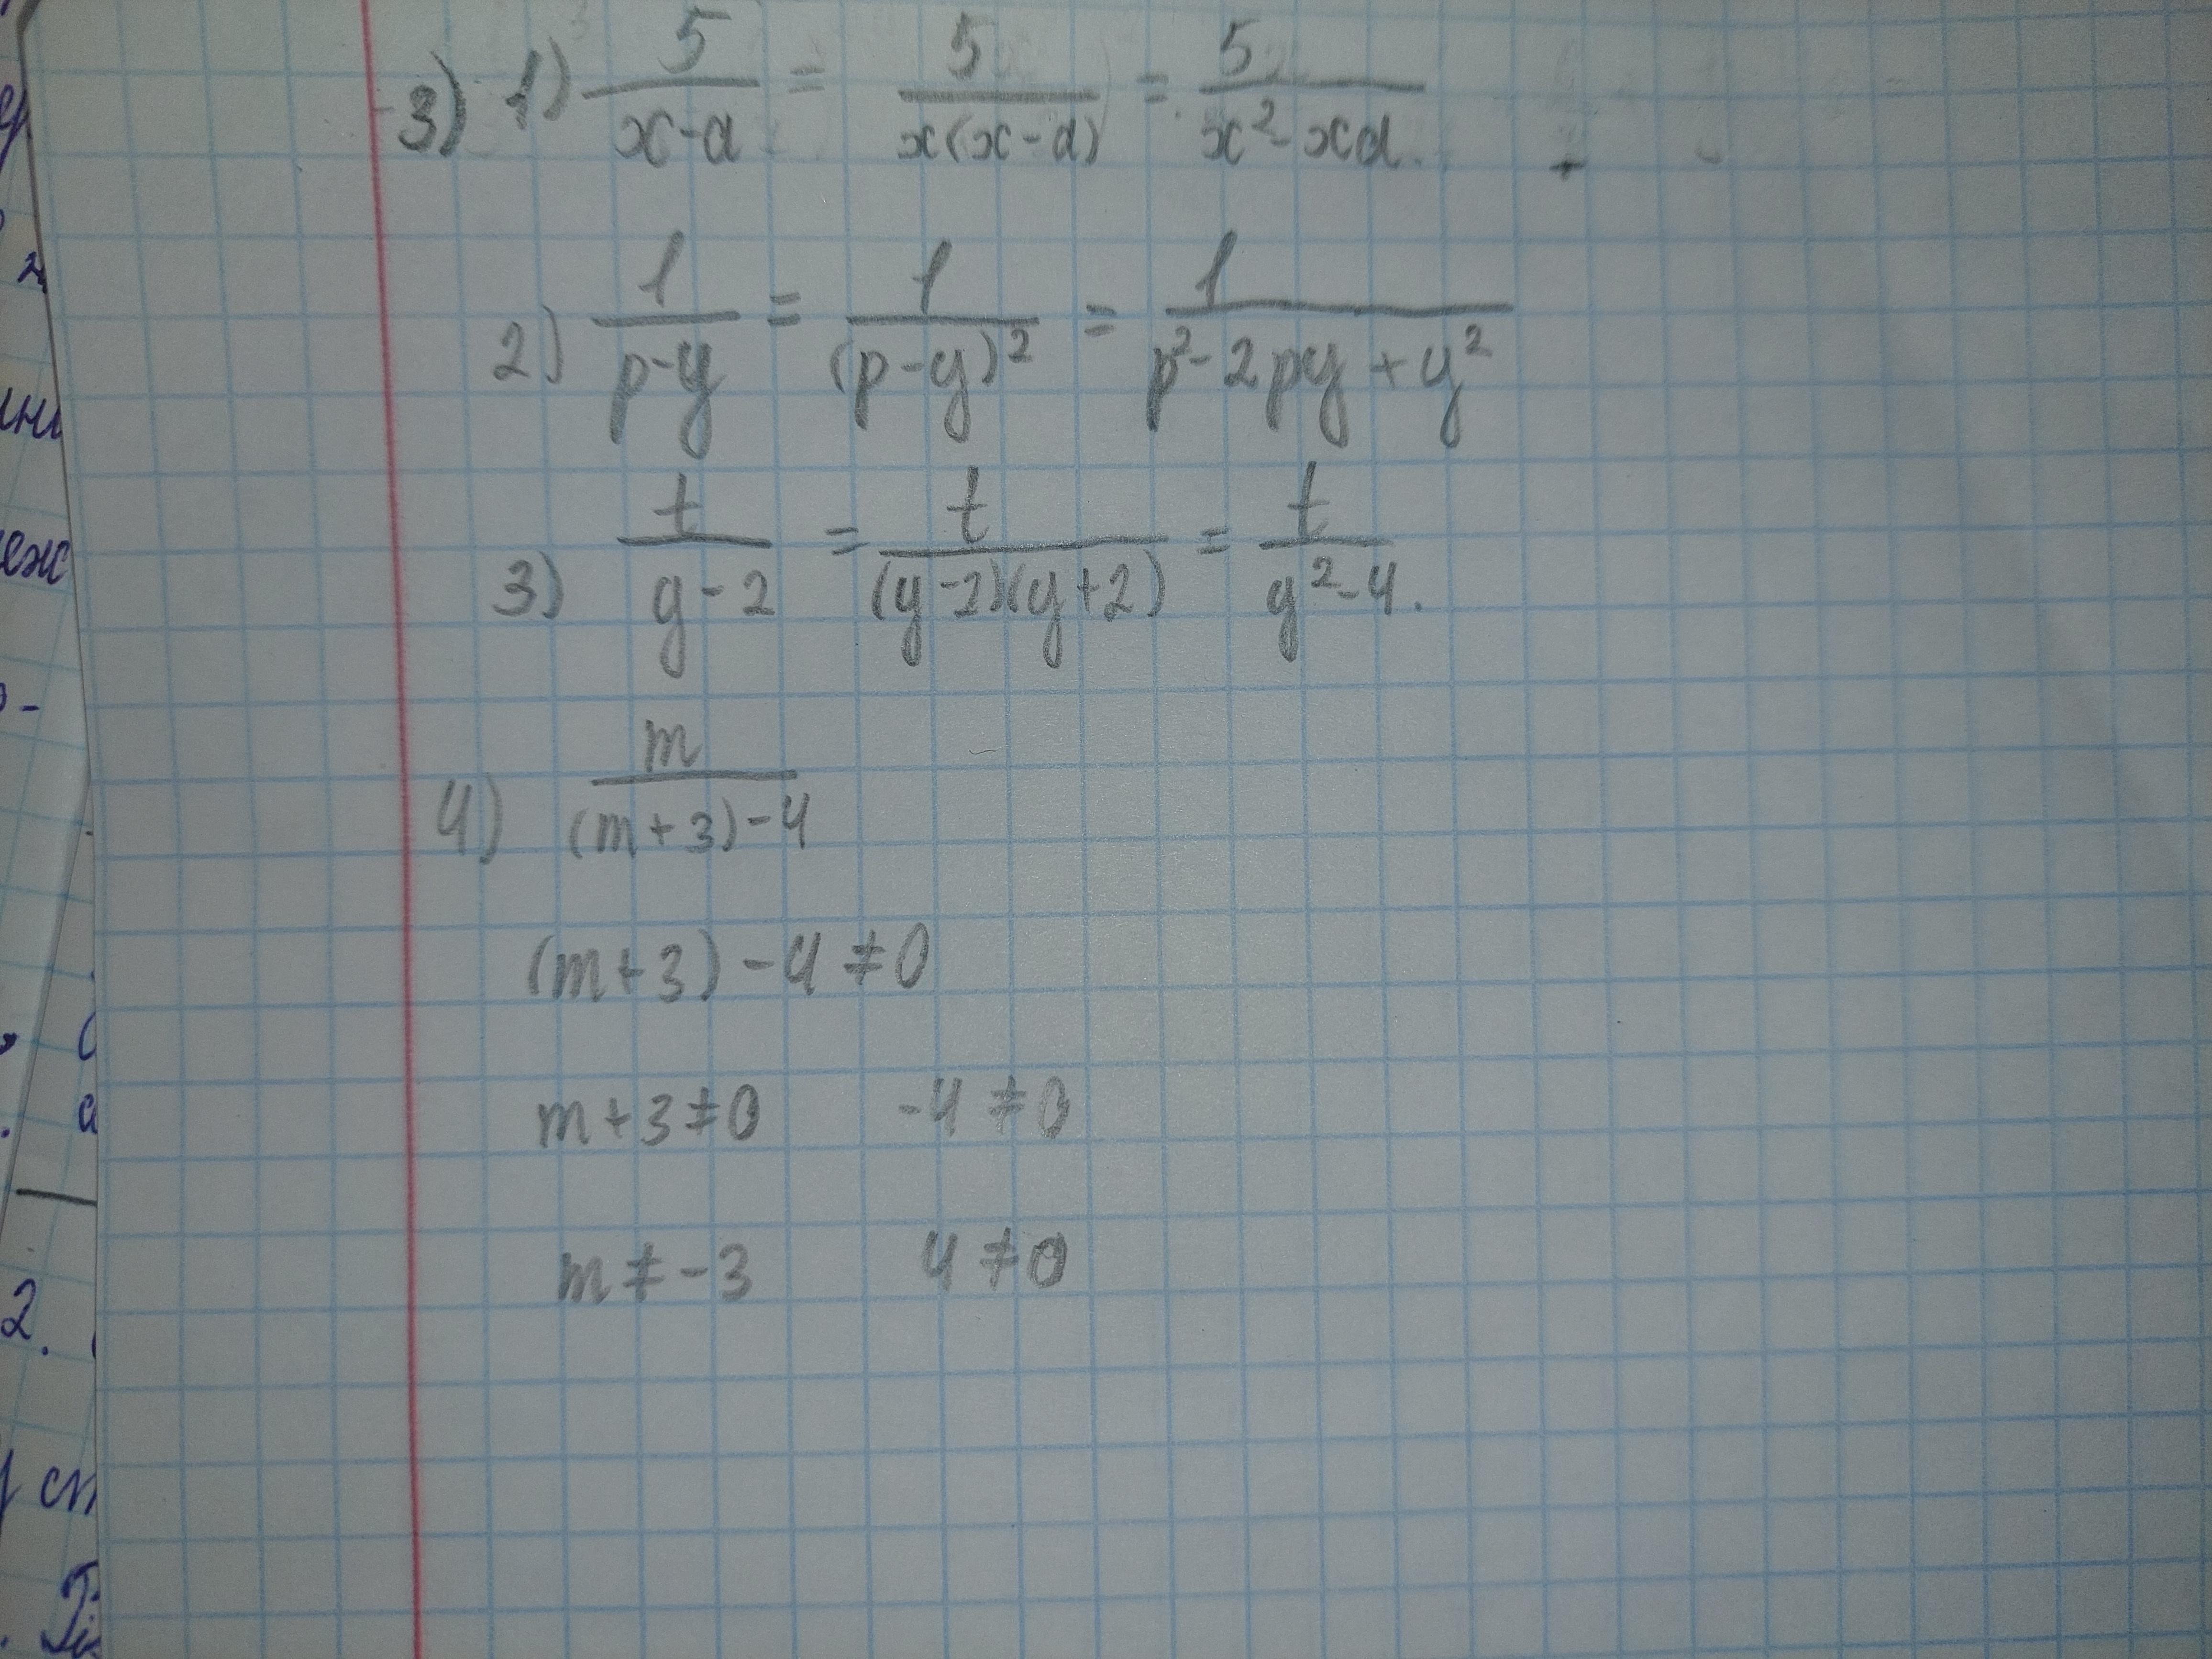 3) 1) 5/(x-a) = 5/(x(x-a)) = 5/(x²-xa).
2) 1/(p-y) = 1/(p-y)² = 1/(p²-2py+y²)
3) t/(y-2) = t/((y-2)(y+2)) = t/(y²-4).
4) m/((m+3)-4)
(m+3)-4≠0
m+3≠0 -4≠0
m≠-3 4≠0
2.